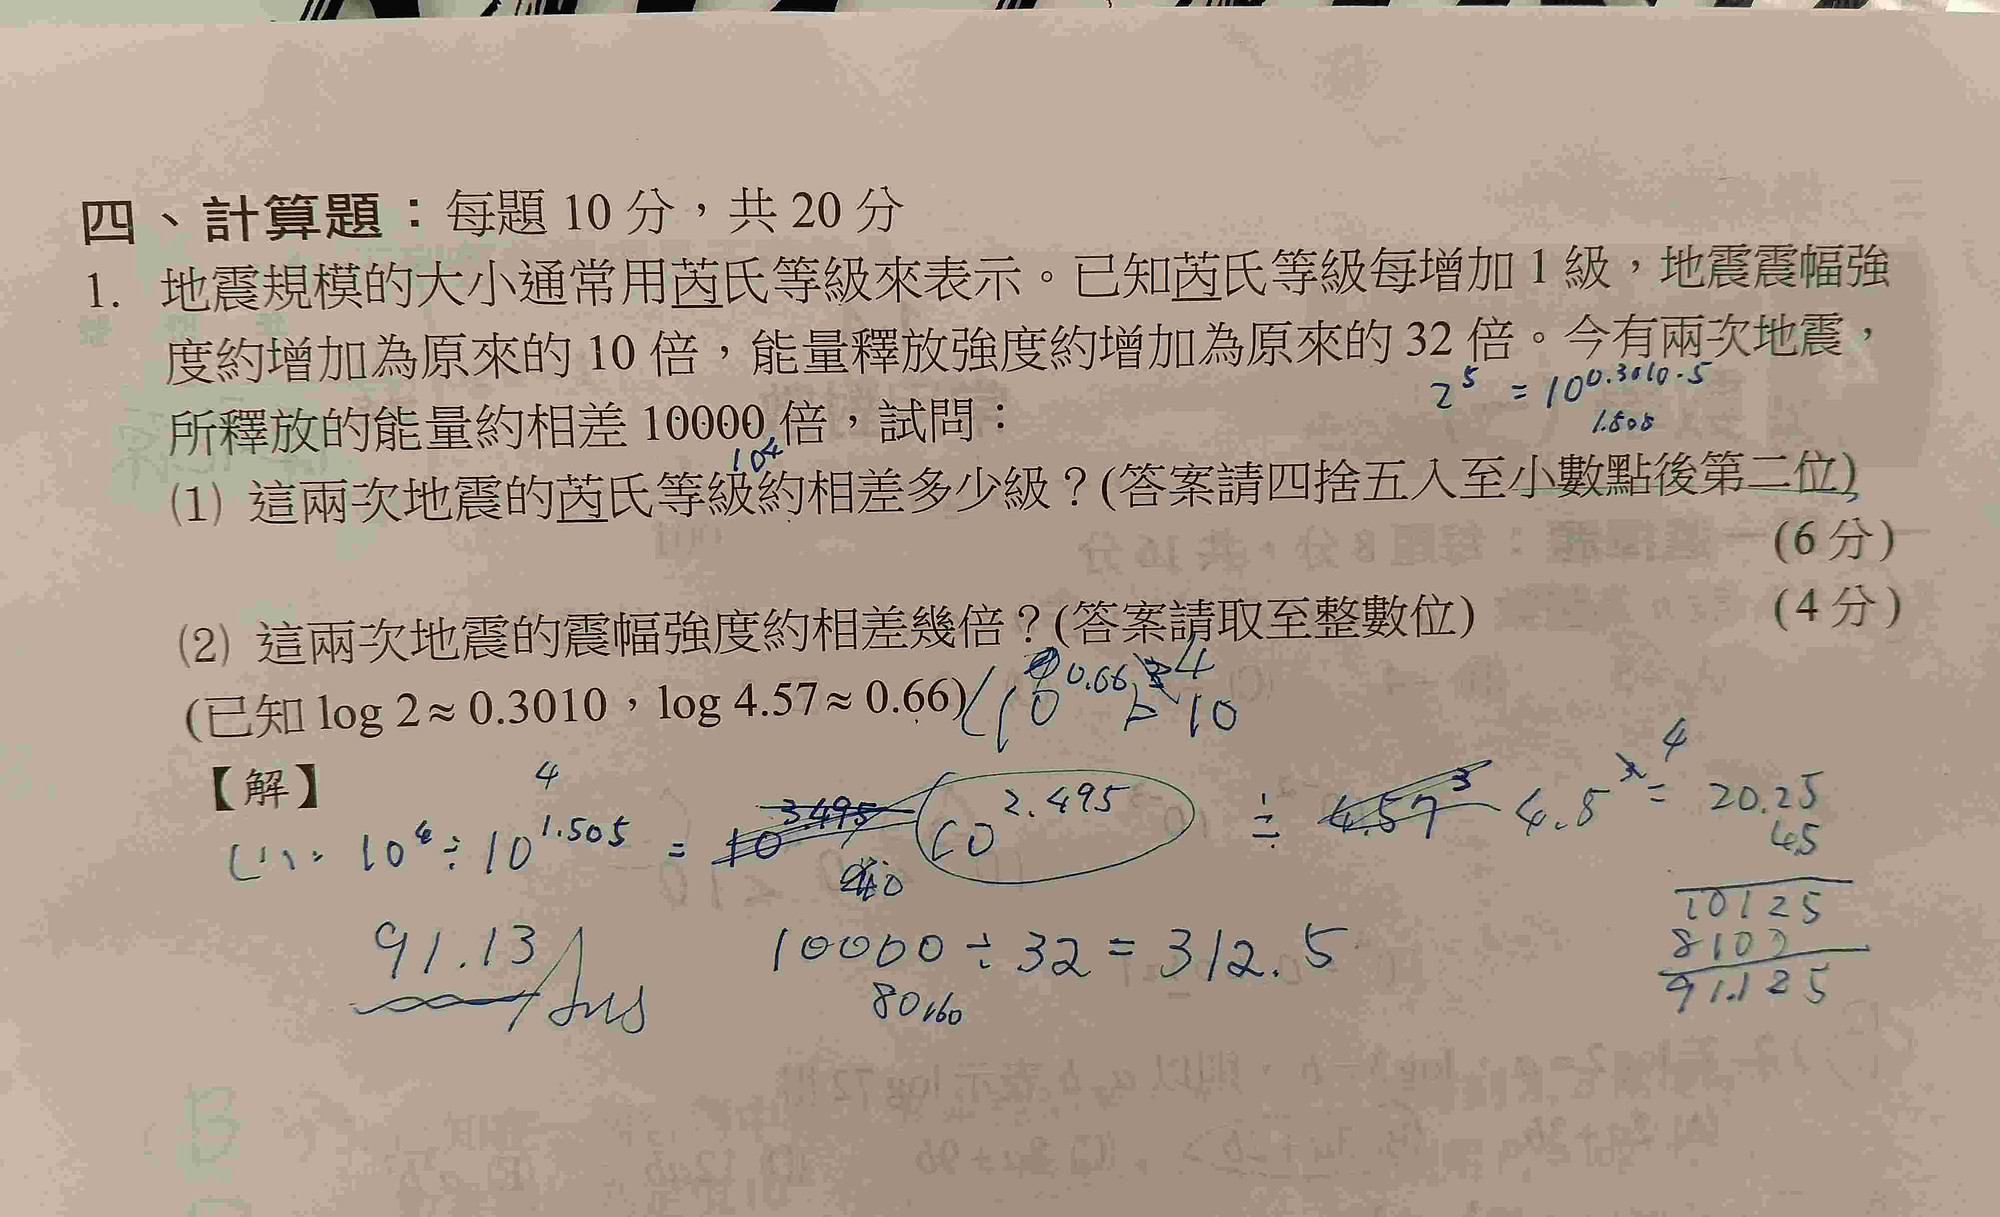 四、計算題：每題 10 分，共 20 分
1. 地震規模的大小通常用芮氏等級來表示。已知芮氏等級每增加 1 級，地震震幅強
度約增加為原來的 10 倍，能量釋放強度約增加為原來的 32 倍。今有兩次地震，
2^5 = 10^0.3010·5
1.505
所釋放的能量約相差 10000 倍，試問：
10^4
(1) 這兩次地震的芮氏等級約相差多少級？(答案請四捨五入至小數點後第二位)
(6 分)
(2) 這兩次地震的震幅強度約相差幾倍？(答案請取至整數位)
(4 分)
(已知 log 2 ≈ 0.3010，log 4.57 ≈ 0.66)
10^0.66
10^4
【解】
(1). 10^4 ÷ 10^1.505 = 10^2.495 ÷ 4.5^4 = 20.25
45
10125
8100
91.125
91.13 Ans
10000 ÷ 32 = 312.5
80 160